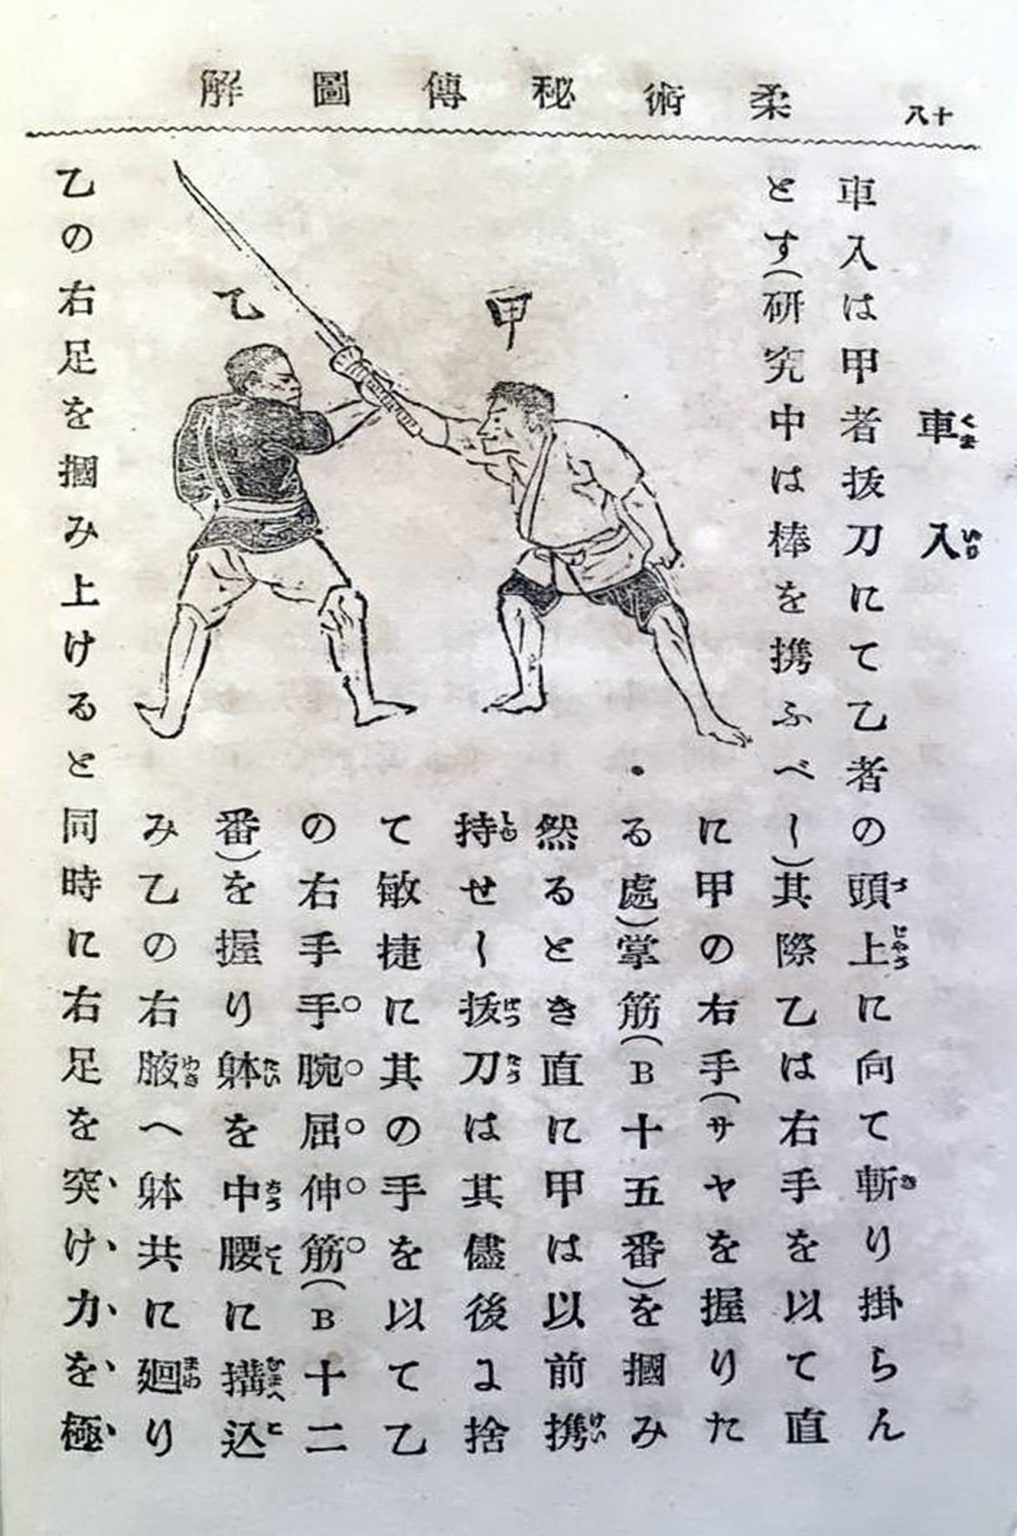 十八
柔術秘傳圖解
車入
車入は甲者抜刀にて乙者の頭上に向て斬り掛らん
とす(研究中は棒を携ふべし)其際乙は右手を以て直
に甲の右手(サヤを握りた
る處)掌筋(B十五番)を摑み
然るとき直に甲は以前携
持せし抜刀は其儘後よ捨
て敏捷に其の手を以て乙
の右手手腕屈伸筋(B十二
番)を握り躰を中腰に搆込
み乙の右腋へ躰共に廻り
乙の右足を摑み上けると同時に右足を突け力を極
甲
乙